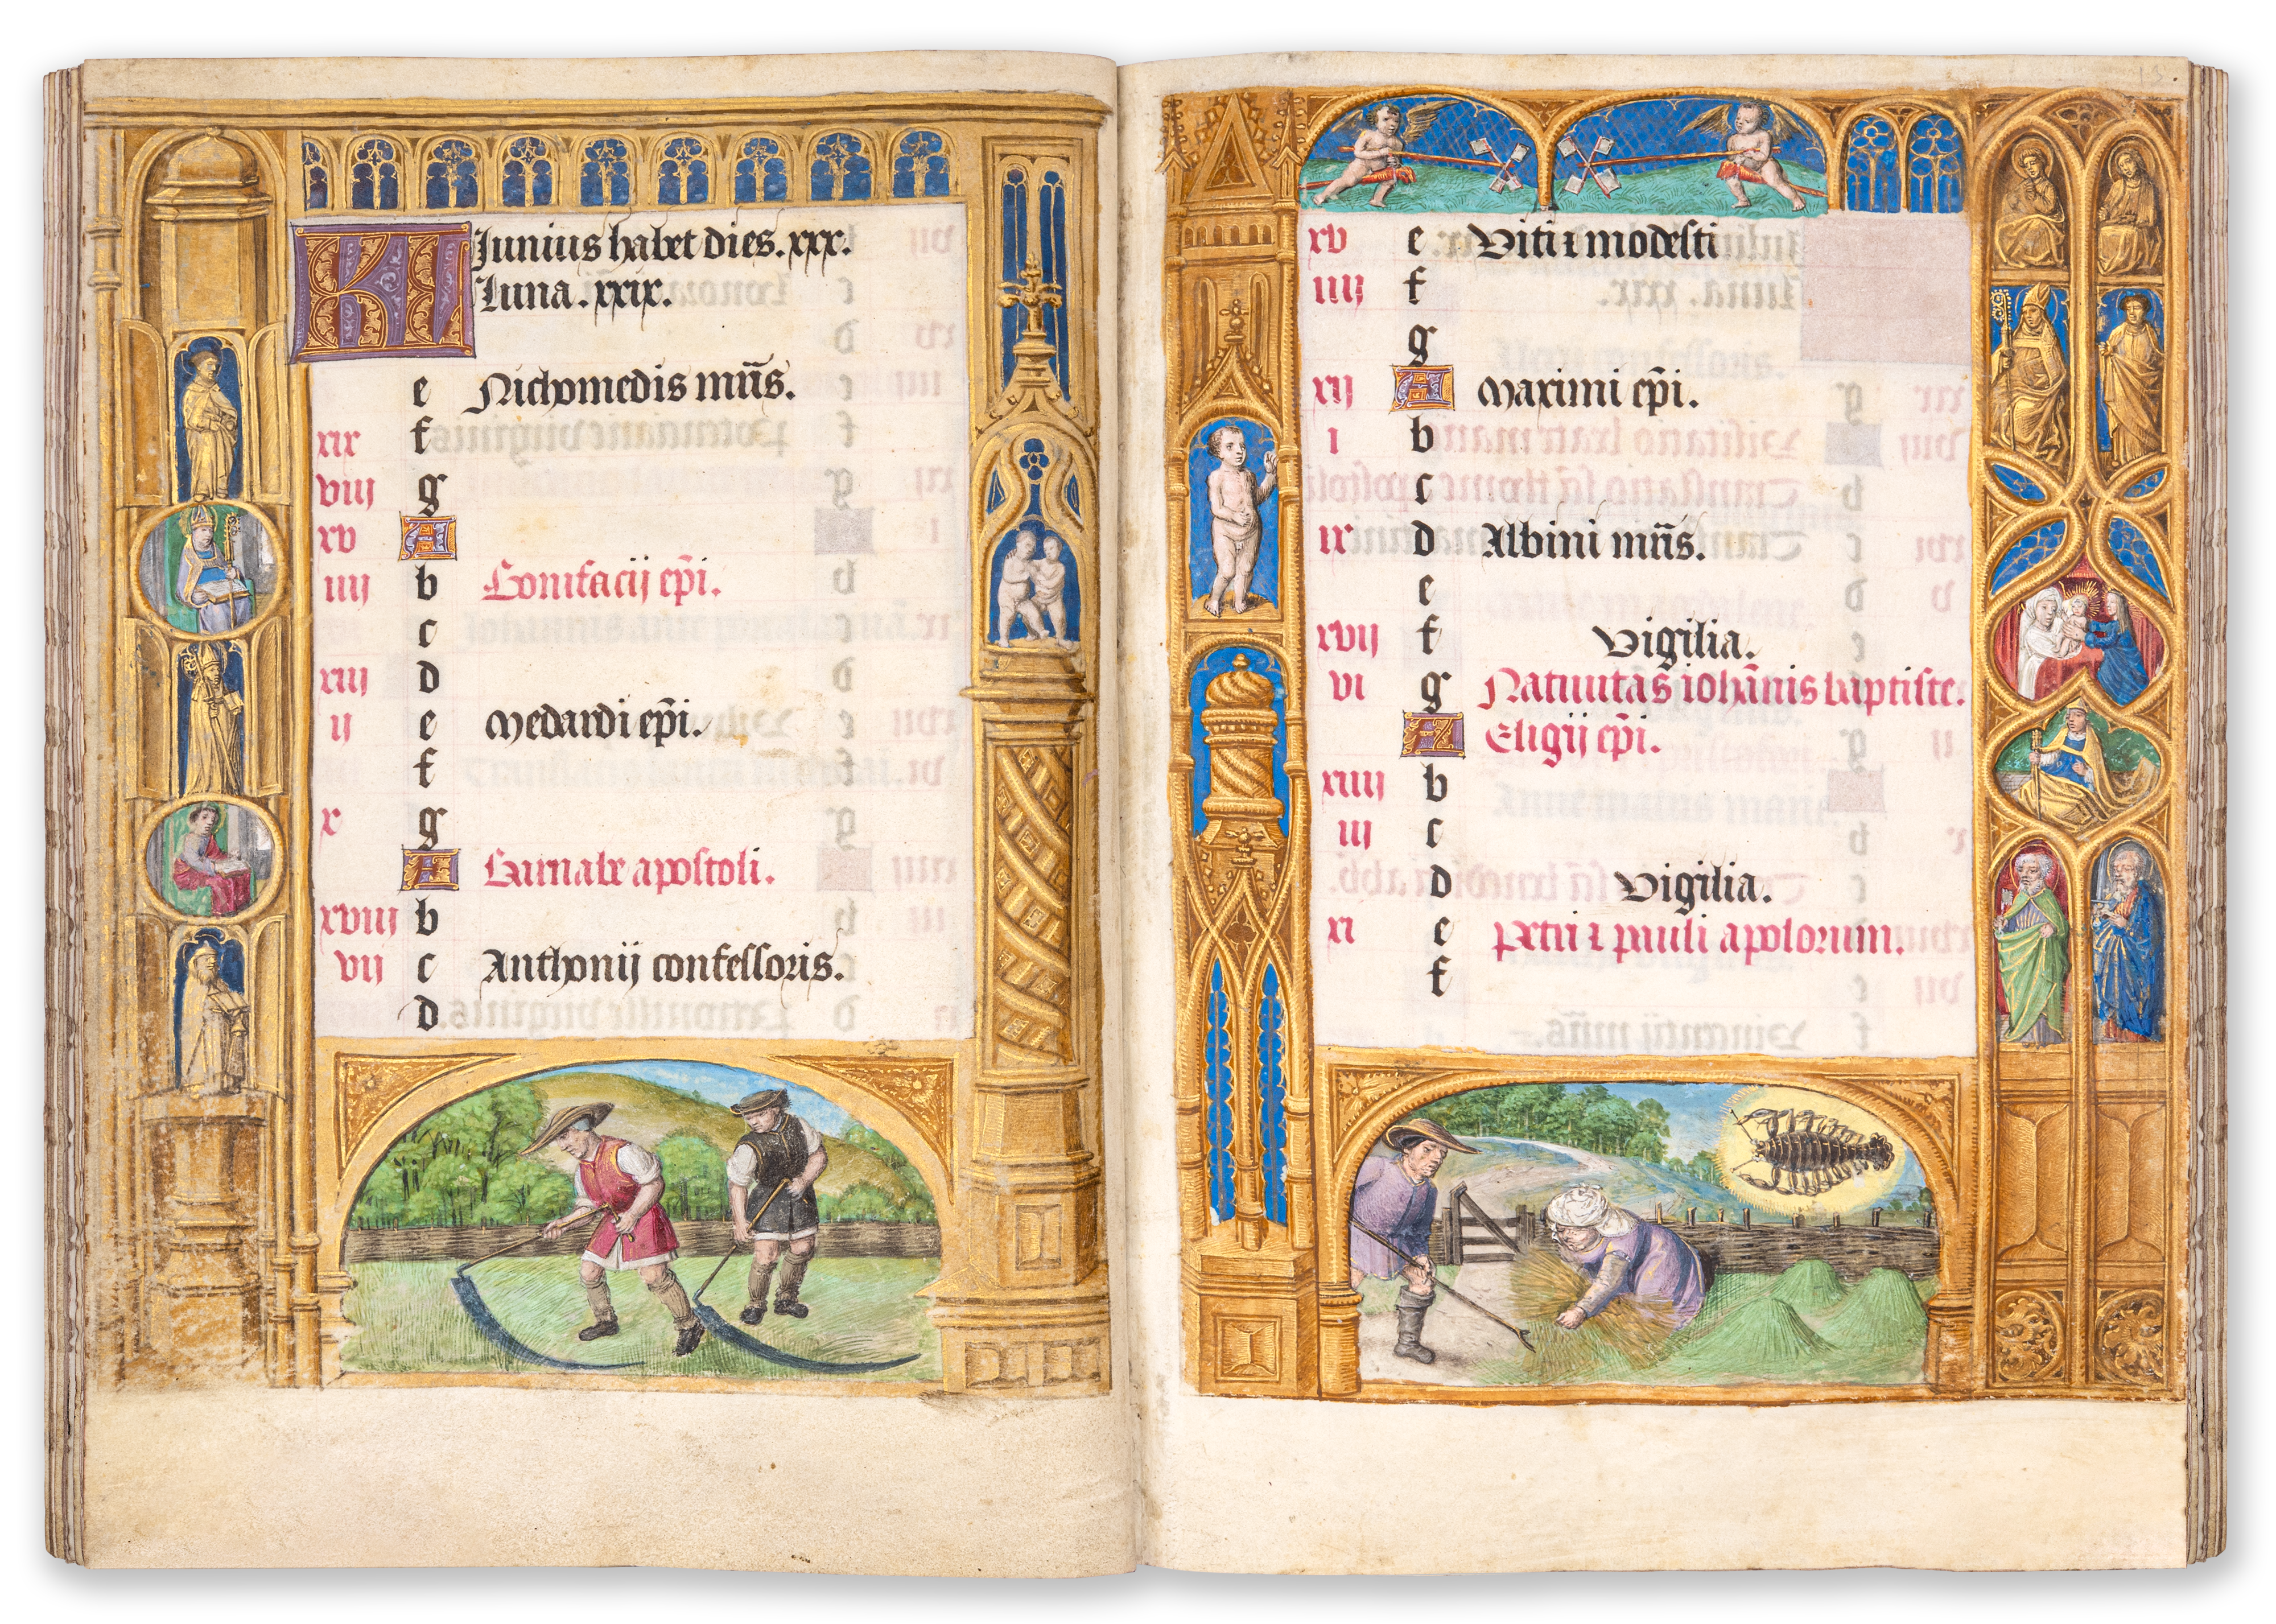 KL Junius habet dies. xxx.
Luna. xxix.
e Nichomedis mr̃is.
xix f
viij g
xv A
iiij b Bonifacij ep̃i.
c
xiij d
ij e Medardi ep̃i.
f
x g
A Barnabe apostoli.
xviij b
vij c Anthonij confessoris.
d
xv e Viti ⁊ modesti
iiij f
g
xij A Maximi ep̃i.
i b
c
ix d Albini mr̃is.
e
xvij f Vigilia.
vi g Natiuitas iohãnis baptiste.
A Eligij ep̃i.
xiiij b
iij c
d Vigilia.
xi e Petri ⁊ pauli apolorum.
f